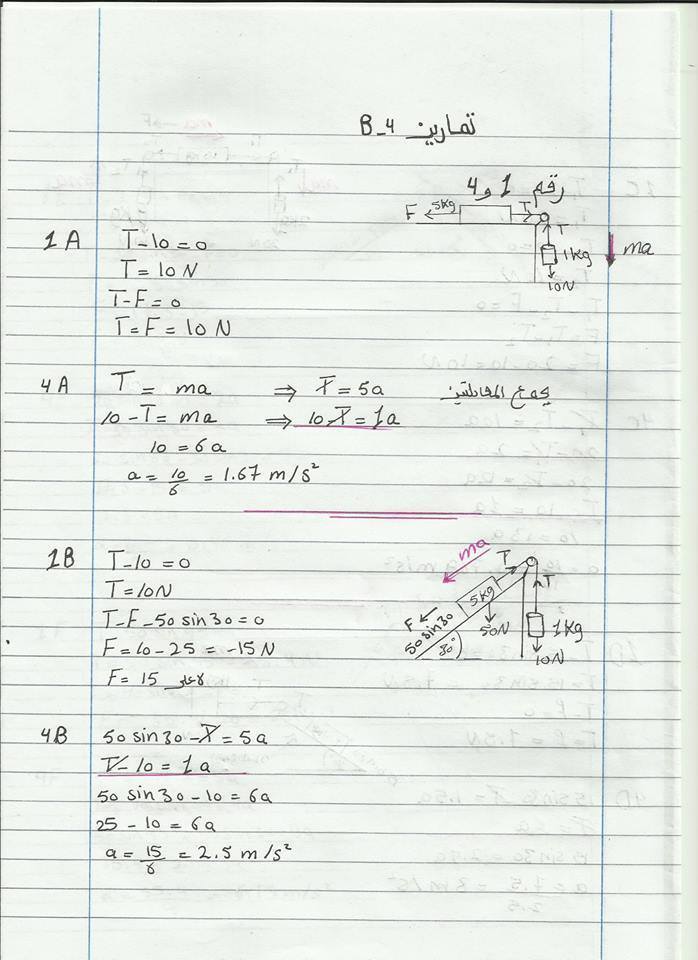 تمارين B-4
رقم 1 و 4
F 5kg T
T
1kg
10N
ma
1A T-10=0
T=10N
T-F=0
T=F=10N
4A T = ma ⇒ T=5a بجمع المعادلتين
10-T=ma ⇒ 10-T=1a
10=6a
a=10/6=1.67 m/s²
ma
T
5kg
T
F
50 sin30
50N
30°
1kg
10N
1B T-10=0
T=10N
T-F-50 sin30=0
F=10-25=-15N
F=15 لأعلى
4B 50 sin30-T=5a
T-10=1a
50 sin30-10=6a
25-10=6a
a=15/6=2.5 m/s²